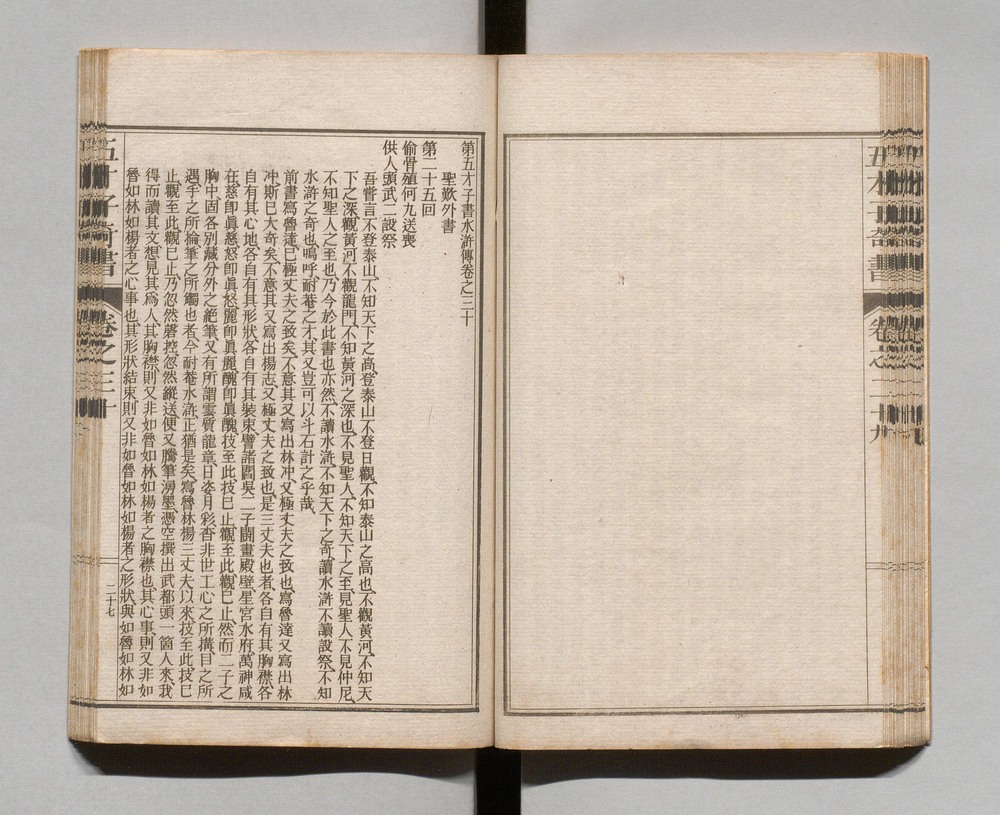 五才子奇書
卷之二十九
第五才子書水滸傳卷之三十
聖歎外書
第二十五回
偷骨殖何九送喪
供人頭武二設祭
吾嘗言不登泰山不知天下之高登泰山不登日觀不知泰山之高也不觀黃河不知天
下之深觀黃河不觀龍門不知黃河之深也不見聖人不知天下之至見聖人不見仲尼
不知聖人之至也乃今於此書也亦然不讀水滸不知天下之奇讀水滸不讀設祭不知
水滸之奇也嗚呼耐菴之才其又豈可以斗石計之乎哉
前書寫魯達巳極丈夫之致矣不意其又寫出林冲又極丈夫之致也寫魯達又寫出林
冲斯巳大奇矣不意其又寫出楊志又極丈夫之致也是三丈夫也者各自有其胸襟各
自有其心地各自有其形狀各自有其裝束譬諸閻吳二子鬭畫殿壁星宮水府萬神咸
在慈卽眞慈怒卽眞怒麗卽眞麗醜卽眞醜技至此技巳止觀至此觀巳止然而二子之
胸中固各別藏分外之絕筆又有所謂雲質龍章日姿月彩杳非世工心之所搆目之所
遇手之所掄筆之所觸也者今耐菴水滸正猶是矣寫魯林楊三丈夫以來技至此技巳
止觀至此觀巳止乃忽然磬控忽然縱送便又騰筆湧墨憑空撰出武都頭一箇人來我
得而讀其文想見其爲人其胸襟則又非如魯如林如楊者之胸襟也其心事則又非如
魯如林如楊者之心事也其形狀結束則又非如魯如林如楊者之形狀與如魯如林如
五才子奇書
卷之三十
二十七